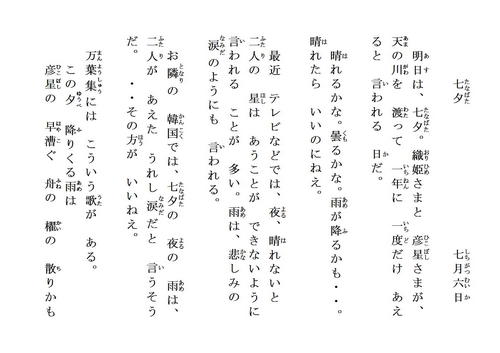 七夕　七月六日
明日は、七夕。織姫さまと　彦星さまが、
天の川を　渡って　一年に　一度だけ　あえ
ると　言われる　日だ。
晴れるかな。曇るかな。雨が降るかも・・。
晴れたら　いいのにねえ。
最近　テレビなどでは、夜、晴れないと
二人の　星は　あうことが　できないように
言われる　ことが　多い。雨は、悲しみの
涙のようにも　言われる。
お隣の　韓国では、七夕の　夜の　雨は、
二人が　あえた　うれし涙だと　言うそう
だ。・・その方が　いいねえ。
万葉集には　こういう歌が　ある。
この夕　降りくる雨は
彦星の　早漕ぐ　舟の　櫂の　散りかも